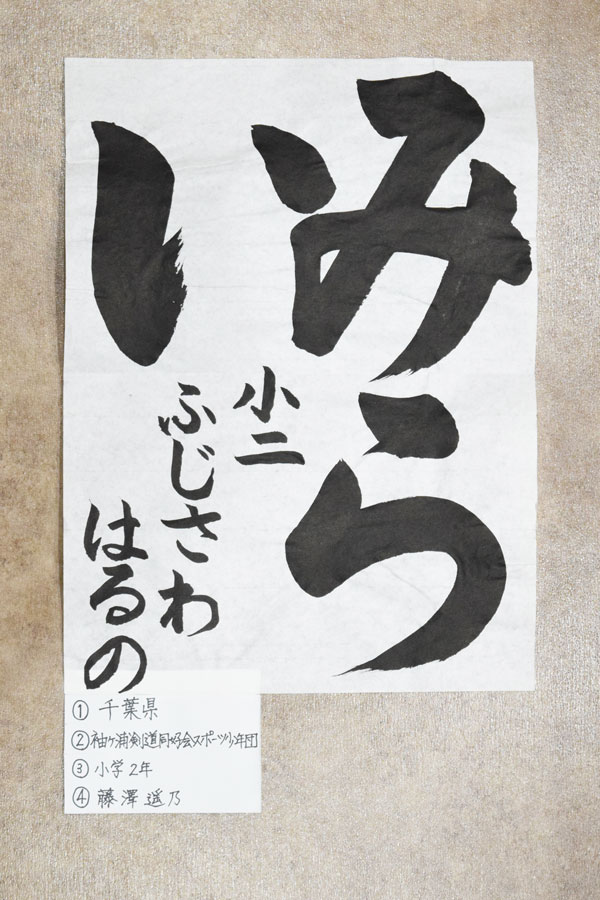 みら
い
小二
ふじさわ
はるの
① 千葉県
② 袖ヶ浦剣道同好会スポーツ少年団
③ 小学2年
④ 藤澤遥乃